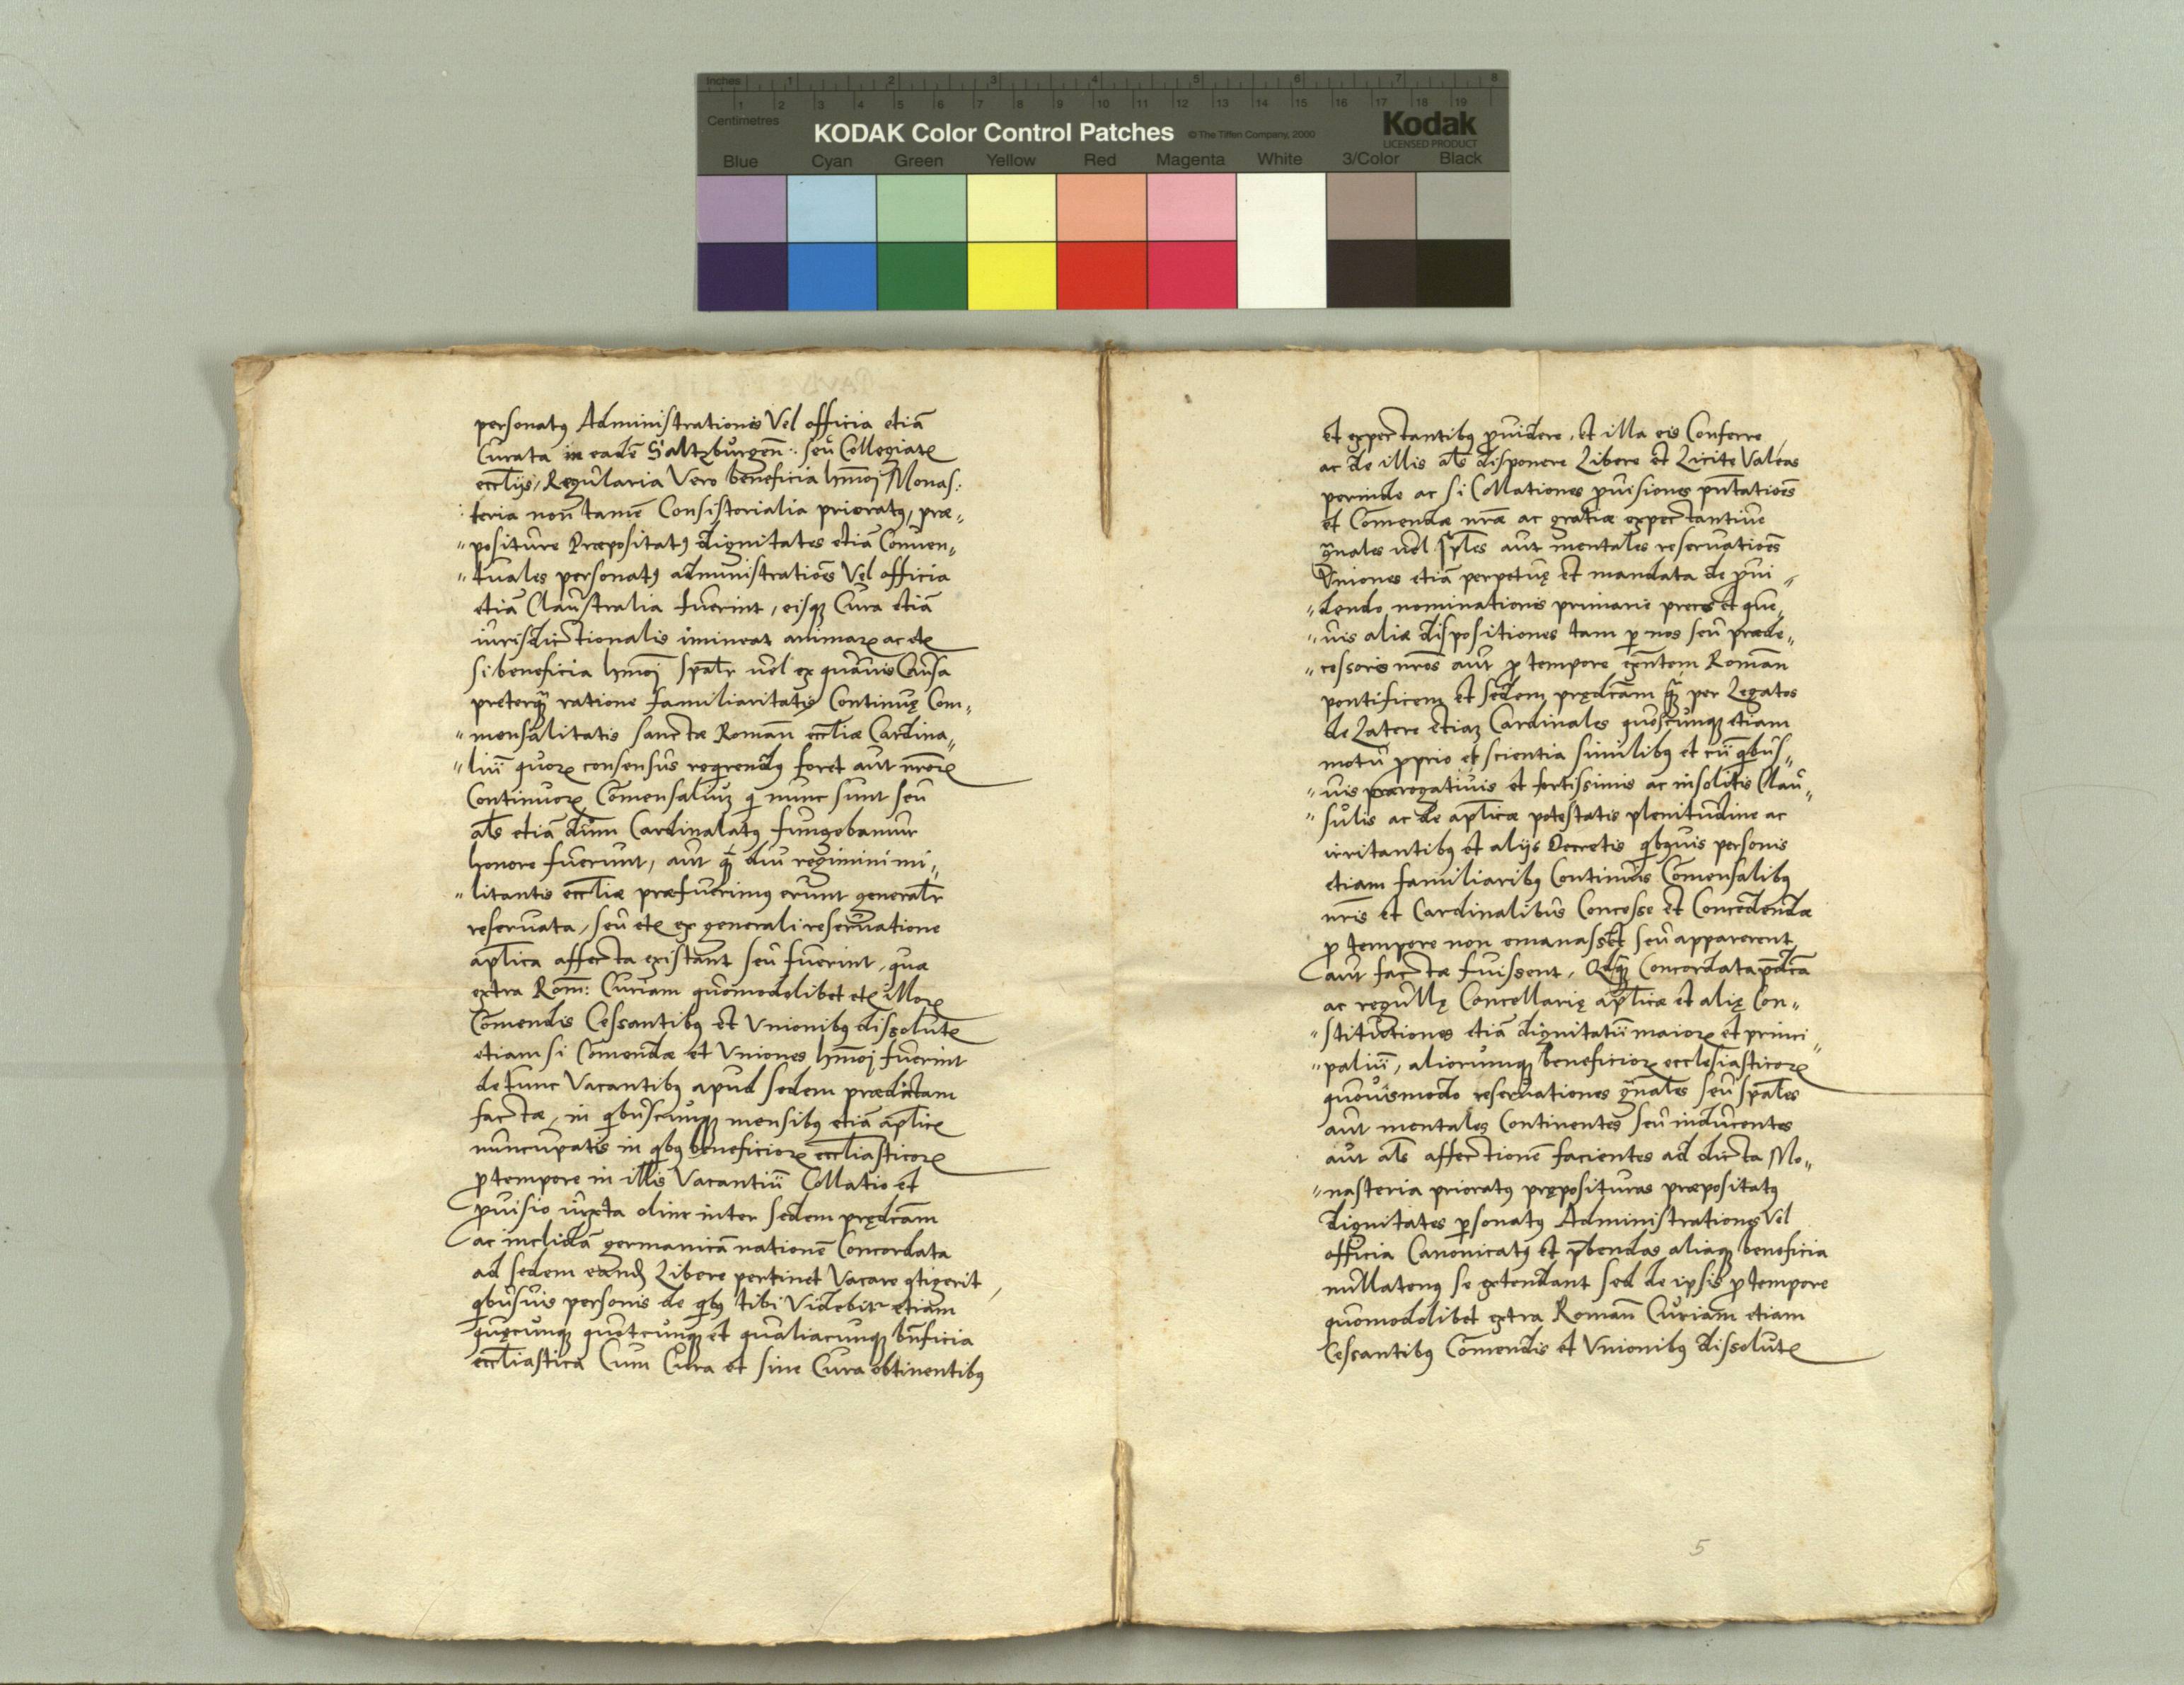 Inches 1 2 3 4 5 6 7 8
Centimetres 1 2 3 4 5 6 7 8 9 10 11 12 13 14 15 16 17 18 19
KODAK Color Control Patches © The Tiffen Company, 2000 Kodak
LICENSED PRODUCT
Blue Cyan Green Yellow Red Magenta White 3/Color Black
personatꝰ Administrationes Vel officia etiā
Curata in eadē Saltzburgeñ: seu Collegiatꝭ
eccl̄ijs, Regularia Vero beneficia hm̄oi Monas:
:teria non tamē Consistorialia prioratꝰ, præ„
„positure Præpositatꝰ dignitates etiā Conuen„
„tuales personatꝰ administratiōes Vel officia
etiā Claustralia fuerint, eisqꝫ Cura etiā
iurisdictionalis imineat animarꝝ ac etꝭ
si beneficia hm̄oi sp̄alr̄ uel ex quauis Causa
preterq̄ꝫ ratione familiaritatis Continuę Com„
„mensalitatis sanctæ Romañ eccl̄iæ Cardina„
„liū quorꝝ consensus reqrendꝰ foret aut nr̄orꝝ
Continuorꝝ Comensaliuꝫ qi nunc sunt seu
al̄s etiā dum Cardinalatꝰ fungebamur
honore fuerunt, aut q̄ꝫ diu regimini mi„
„litantis eccl̄iæ præfuerimꝰ erunt generalr̄
reseruata, seu etꝭ ex generali reseruatione
ap̄lica affecta existant seu fuerint, qua
extra Rom̄: Curiam quomodolibet etꝭ illorꝝ
Comendis Cessantibꝰ et Vnionibꝰ dissolutꝭ
etiam si Comendæ et Vniones hm̄oi fuerint
de tunc Vacantibꝰ apud sedem prædictam
factæ, in qibuscunqꝫ mensibꝰ etiā ap̄licꝭ
nuncupatis in qibꝰ beneficiorꝝ eccl̄iasticorꝝ
ꝓ tempore in illis Vacantiū Collatio et
ꝓuisio iuxta olim inter sedem prędcām
ac inclitā germanicā nationē Concordata
ad sedem eandꝫ Libere pertinet Vacare ꝯtigerit
qibusuis personis de qibꝰ tibi Videbitr etiam
quęcunqꝫ quotcunqꝫ et qualiacunqꝫ bn̄ficia
eccl̄iastica Cum Cura et sine Cura obtinentibꝰ
et expectantibꝰ ꝓuidere, et illa eis Conferre,
ac de illis al̄s disponere Libere et Licite Valeas
perinde ac si Collationes ꝓuisiones pn̄tatiōes
et Comendæ nrǣ ac gratiæ expectantiue
gn̄ales uel sp̄les aut mentales reseruatiōes
Vniones etiā perpetuę et mandata de ꝓui„
„dendo nominationis primarie preces et que„
„uis aliæ dispositiones tam ꝑ nos seu præde„
„cessores nr̄os aut ꝓ tempore exn̄tem Romañ
pontificem et sedem prędcām q̄ꝫ per Legatos
de Latere etiaꝫ Cardinales quoscunqꝫ etiam
motu ꝓprio et scientia similibꝰ et cū qibus„
„uis prærogatiuis et fortissimis ac insolitis Clau„
„sulis ac de ap̄licæ potestatis plenitudine ac
irritantibꝰ et alijs Decretis qibꝰuis personis
etiam familiaribꝰ Continuis Comensalibꝰ
nr̄is et Cardinalibus Concesse et Concedendæ
ꝓ tempore non emanassēt seu apparerent
aut factæ fuissent, Concordata p̄dcā
ac regullę Concellarię ap̄licæ et alię Con„
„stitutiones etiā dignitatū maiorꝝ et princi„
„paliū, aliorumqꝫ beneficiorꝝ ecclesiasticorꝝ
quouismodo reseruationes gn̄ales seu sp̄ales
aut mentales Continentes seu inducentes
aut al̄s affectionē facientes ad dicta Mo„
„nasteria prioratꝰ pręposituras præpositatꝰ
dignitates ꝑsonatꝰ Administrationes Vel
officia Canonicatꝰ et p̄bendas aliaqꝫ beneficia
nullatenꝰ se extendant sed de ipsis ꝓ tempore
quomodolibet extra Romañ Curiam etiam
Cessantibꝰ Comendis et Vnionibꝰ dissolutꝭ
5